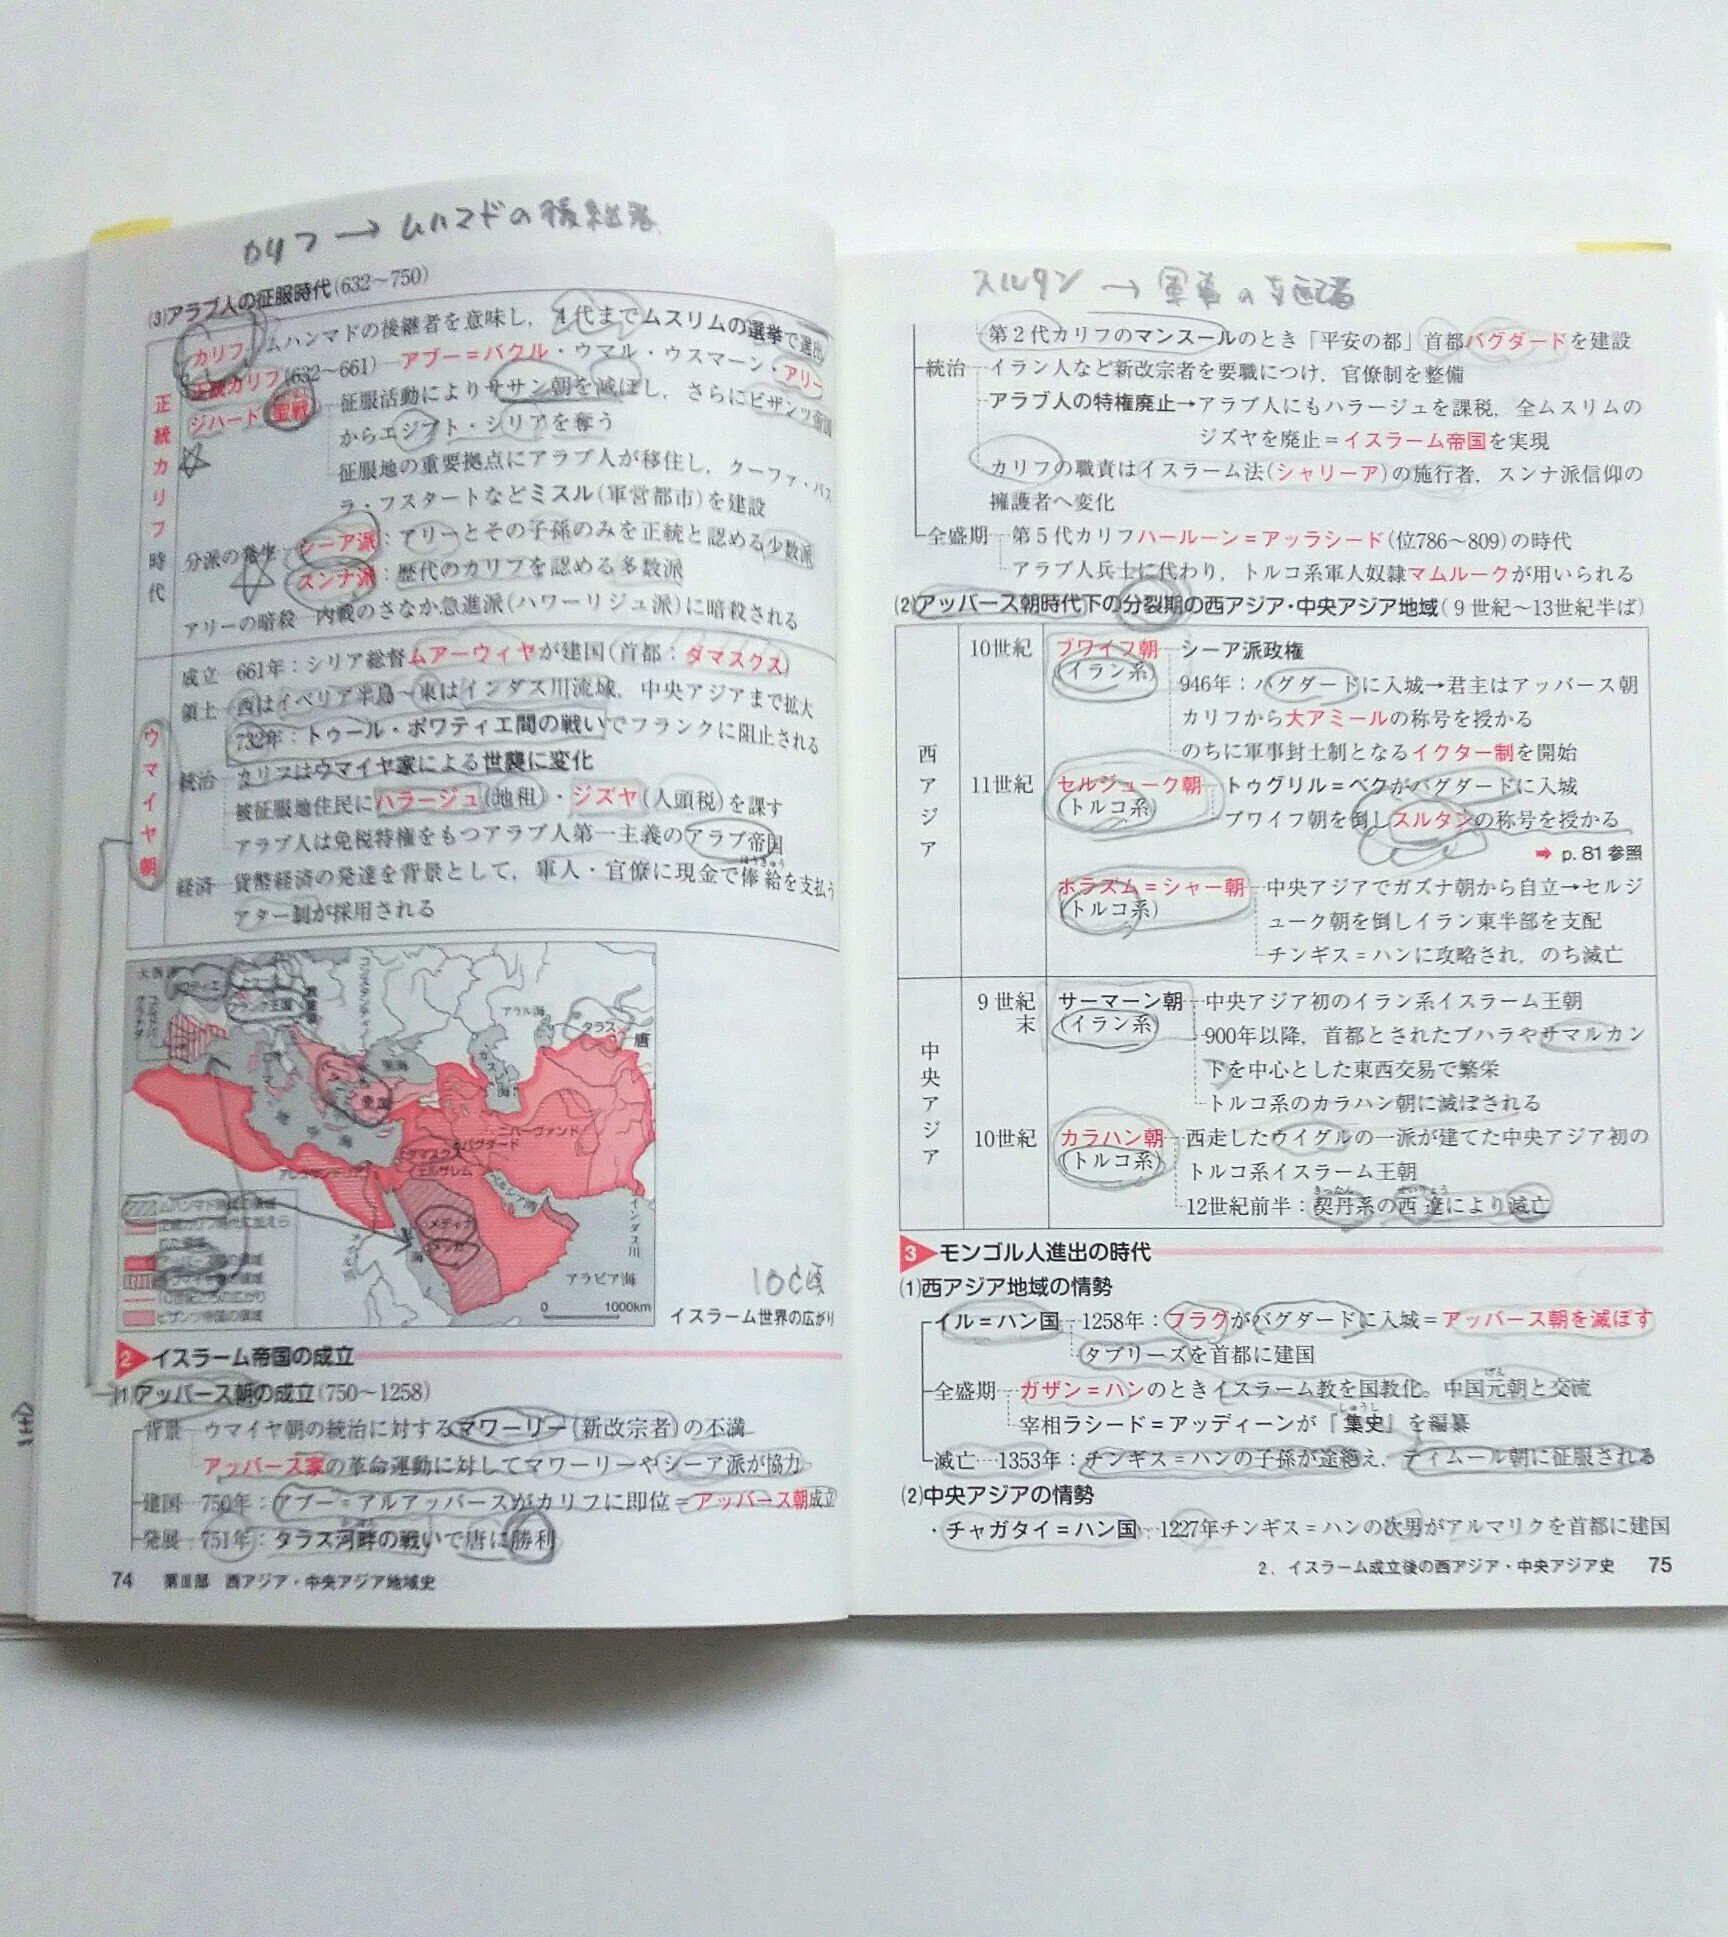 カリフ → ムハマドの後継者
(3)アラブ人の征服時代(632〜750)
カリフ ムハンマドの後継者を意味し，4代までムスリムの選挙で選出
正統カリフ(632〜661)―アブー＝バクル・ウマル・ウスマーン・アリー
ジハード(聖戦) 征服活動によりササン朝を滅ぼし，さらにビザンツ帝国
からエジプト・シリアを奪う
征服地の重要拠点にアラブ人が移住し，クーファ・バス
ラ・フスタートなどミスル(軍営都市)を建設
分派の発生 シーア派：アリーとその子孫のみを正統と認める少数派
スンナ派：歴代のカリフを認める多数派
アリーの暗殺 内戦のさなか急進派(ハワーリジュ派)に暗殺される
正統カリフ時代
成立 661年：シリア総督ムアーウィヤが建国(首都：ダマスクス)
領土 西はイベリア半島〜東はインダス川流域，中央アジアまで拡大
732年：トゥール・ポワティエ間の戦いでフランクに阻止される
統治 カリフはウマイヤ家による世襲に変化
被征服地住民にハラージュ(地租)・ジズヤ(人頭税)を課す
アラブ人は免税特権をもつアラブ人第一主義のアラブ帝国
経済 貨幣経済の発達を背景として，軍人・官僚に現金で俸給を支払う
ほうきゅう
アター制が採用される
ウマイヤ朝
フランク王国
アラル海
タラス
唐
黒海
カスピ海
地中海
ニハーヴァンド
バグダード
ダマスクス
イェルサレム
ペルシア湾
メディナ
メッカ
紅海
インダス川
アラビア海
0 1000km
10C頃
イスラーム世界の広がり
2 イスラーム帝国の成立
(1)アッバース朝の成立(750〜1258)
背景 ウマイヤ朝の統治に対するマワーリー(新改宗者)の不満
アッバース家の革命運動に対してマワーリーやシーア派が協力
建国 750年：アブー＝アルアッバースがカリフに即位＝アッバース朝成立
発展 751年：タラス河畔の戦いで唐に勝利
74 第Ⅲ部 西アジア・中央アジア地域史
スルタン → 軍事の支配者
第2代カリフのマンスールのとき「平安の都」首都バグダードを建設
統治 イラン人など新改宗者を要職につけ，官僚制を整備
アラブ人の特権廃止→アラブ人にもハラージュを課税，全ムスリムの
ジズヤを廃止＝イスラーム帝国を実現
カリフの職責はイスラーム法(シャリーア)の施行者，スンナ派信仰の
擁護者へ変化
全盛期 第5代カリフハールーン＝アッラシード(位786〜809)の時代
アラブ人兵士に代わり，トルコ系軍人奴隷マムルークが用いられる
(2)アッバース朝時代下の分裂期の西アジア・中央アジア地域(9世紀〜13世紀半ば)
西アジア
10世紀 ブワイフ朝 シーア派政権
(イラン系) 946年：バグダードに入城→君主はアッバース朝
カリフから大アミールの称号を授かる
のちに軍事封土制となるイクター制を開始
11世紀 セルジューク朝 トゥグリル＝ベクがバグダードに入城
(トルコ系) ブワイフ朝を倒しスルタンの称号を授かる
➡ p.81参照
ホラズム＝シャー朝 中央アジアでガズナ朝から自立→セルジ
(トルコ系) ューク朝を倒しイラン東半部を支配
チンギス＝ハンに攻略され，のち滅亡
中央アジア
9世紀末 サーマーン朝 中央アジア初のイラン系イスラーム王朝
(イラン系) 900年以降，首都とされたブハラやサマルカン
ドを中心とした東西交易で繁栄
トルコ系のカラハン朝に滅ぼされる
10世紀 カラハン朝 西走したウイグルの一派が建てた中央アジア初の
(トルコ系) トルコ系イスラーム王朝
きったん せいりょう
12世紀前半：契丹系の西遼により滅亡
3 モンゴル人進出の時代
(1)西アジア地域の情勢
イル＝ハン国 1258年：フラグがバグダードに入城＝アッバース朝を滅ぼす
タブリーズを首都に建国
全盛期 ガザン＝ハンのときイスラーム教を国教化。中国元朝と交流
げん
しゅうし
宰相ラシード＝アッディーンが『集史』を編纂
滅亡 1353年：チンギス＝ハンの子孫が途絶え，ティムール朝に征服される
(2)中央アジアの情勢
・チャガタイ＝ハン国 1227年チンギス＝ハンの次男がアルマリクを首都に建国
2．イスラーム成立後の西アジア・中央アジア史 75